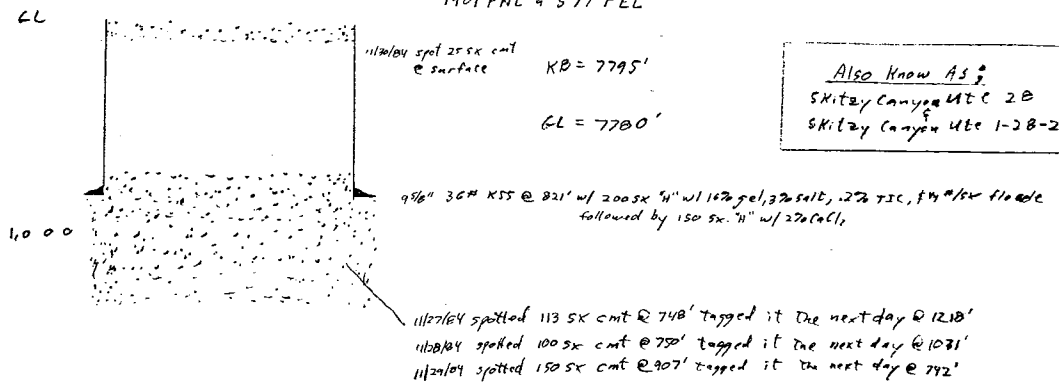 GL
11/30/84 spot 25 sx cmt
@ surface
KB = 7795'
GL = 7780'
Also Know As:
Skitzy Canyon Ute 28
&
Skitzy Canyon Ute 1-28-2
9 5/8" 36# K55 @ 821' w/ 200 sx "H" w/ 16% gel, 3% salt, .2% TIC,
followed by 150 sx. "H" w/ 2% CaCl2
1,000
11/27/84 spotted 113 sx cmt @ 748' tagged it the next day @ 1218'
11/28/84 spotted 100 sx cmt @ 750' tagged it the next day @ 1031'
11/29/84 spotted 150 sx cmt @ 907' tagged it the next day @ 742'